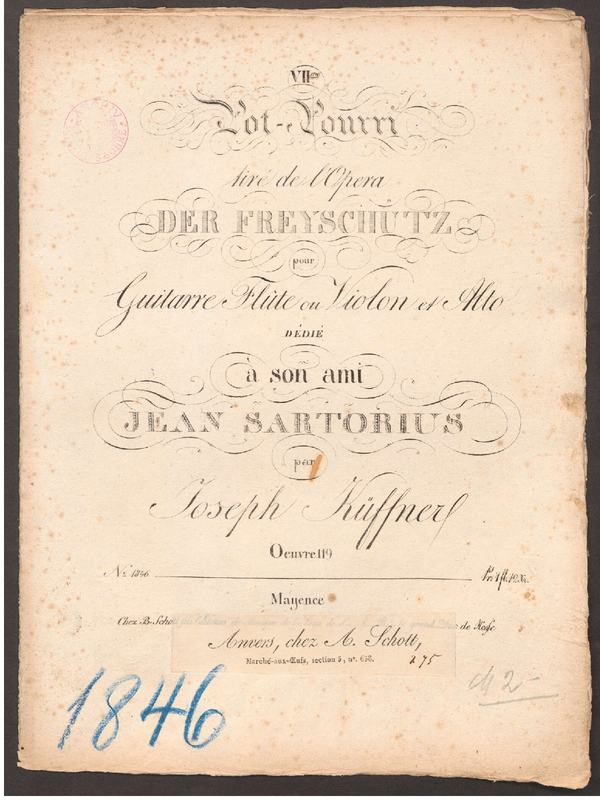 VII.me
Pot-Pourri
tiré de l'Opera
DER FREYSCHÜTZ
pour
Guitarre Flûte ou Violon et Alto
DÉDIÉ
à son ami
JEAN SARTORIUS
par
Joseph Küffner
Oeuvre 119
No. 1846 Pr. 1 fl. 12 Xr.
Mayence
Chez B. Schott de Hesse
Anvers, chez A. Schott,
Marché-aux-Œufs, section 3, no. 658. 2 75
1846
M 2-